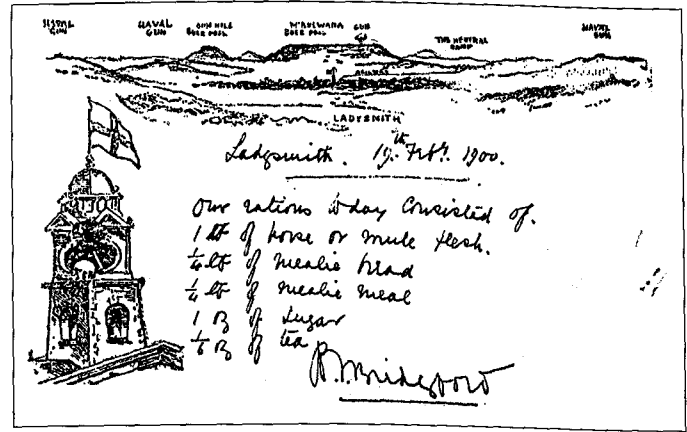 SIGNAL GUN
NAVAL GUN
GUN HILL BOER POSN
BOER POSN
GUN
THE NEUTRAL CAMP
NAVAL GUN
LADYSMITH
Ladysmith. 19th Feby. 1900.
Our rations today Consisted of.
1 lb of horse or mule flesh.
1/4 lb of mealie bread
1/4 lb of mealie meal
1 oz of sugar
1/6 oz of tea